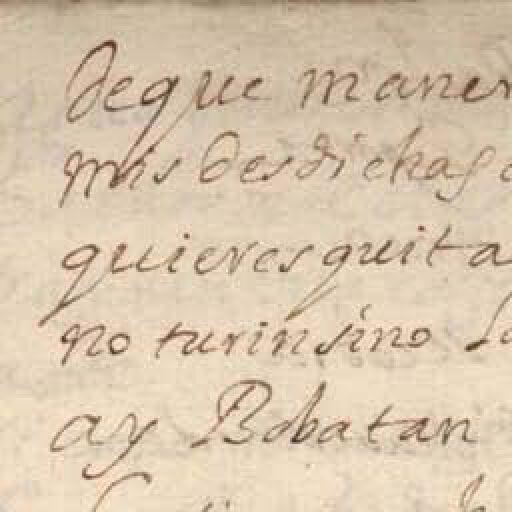 deque maner
mis desdichas
quieres quita
no turin sino
ay Boba tan